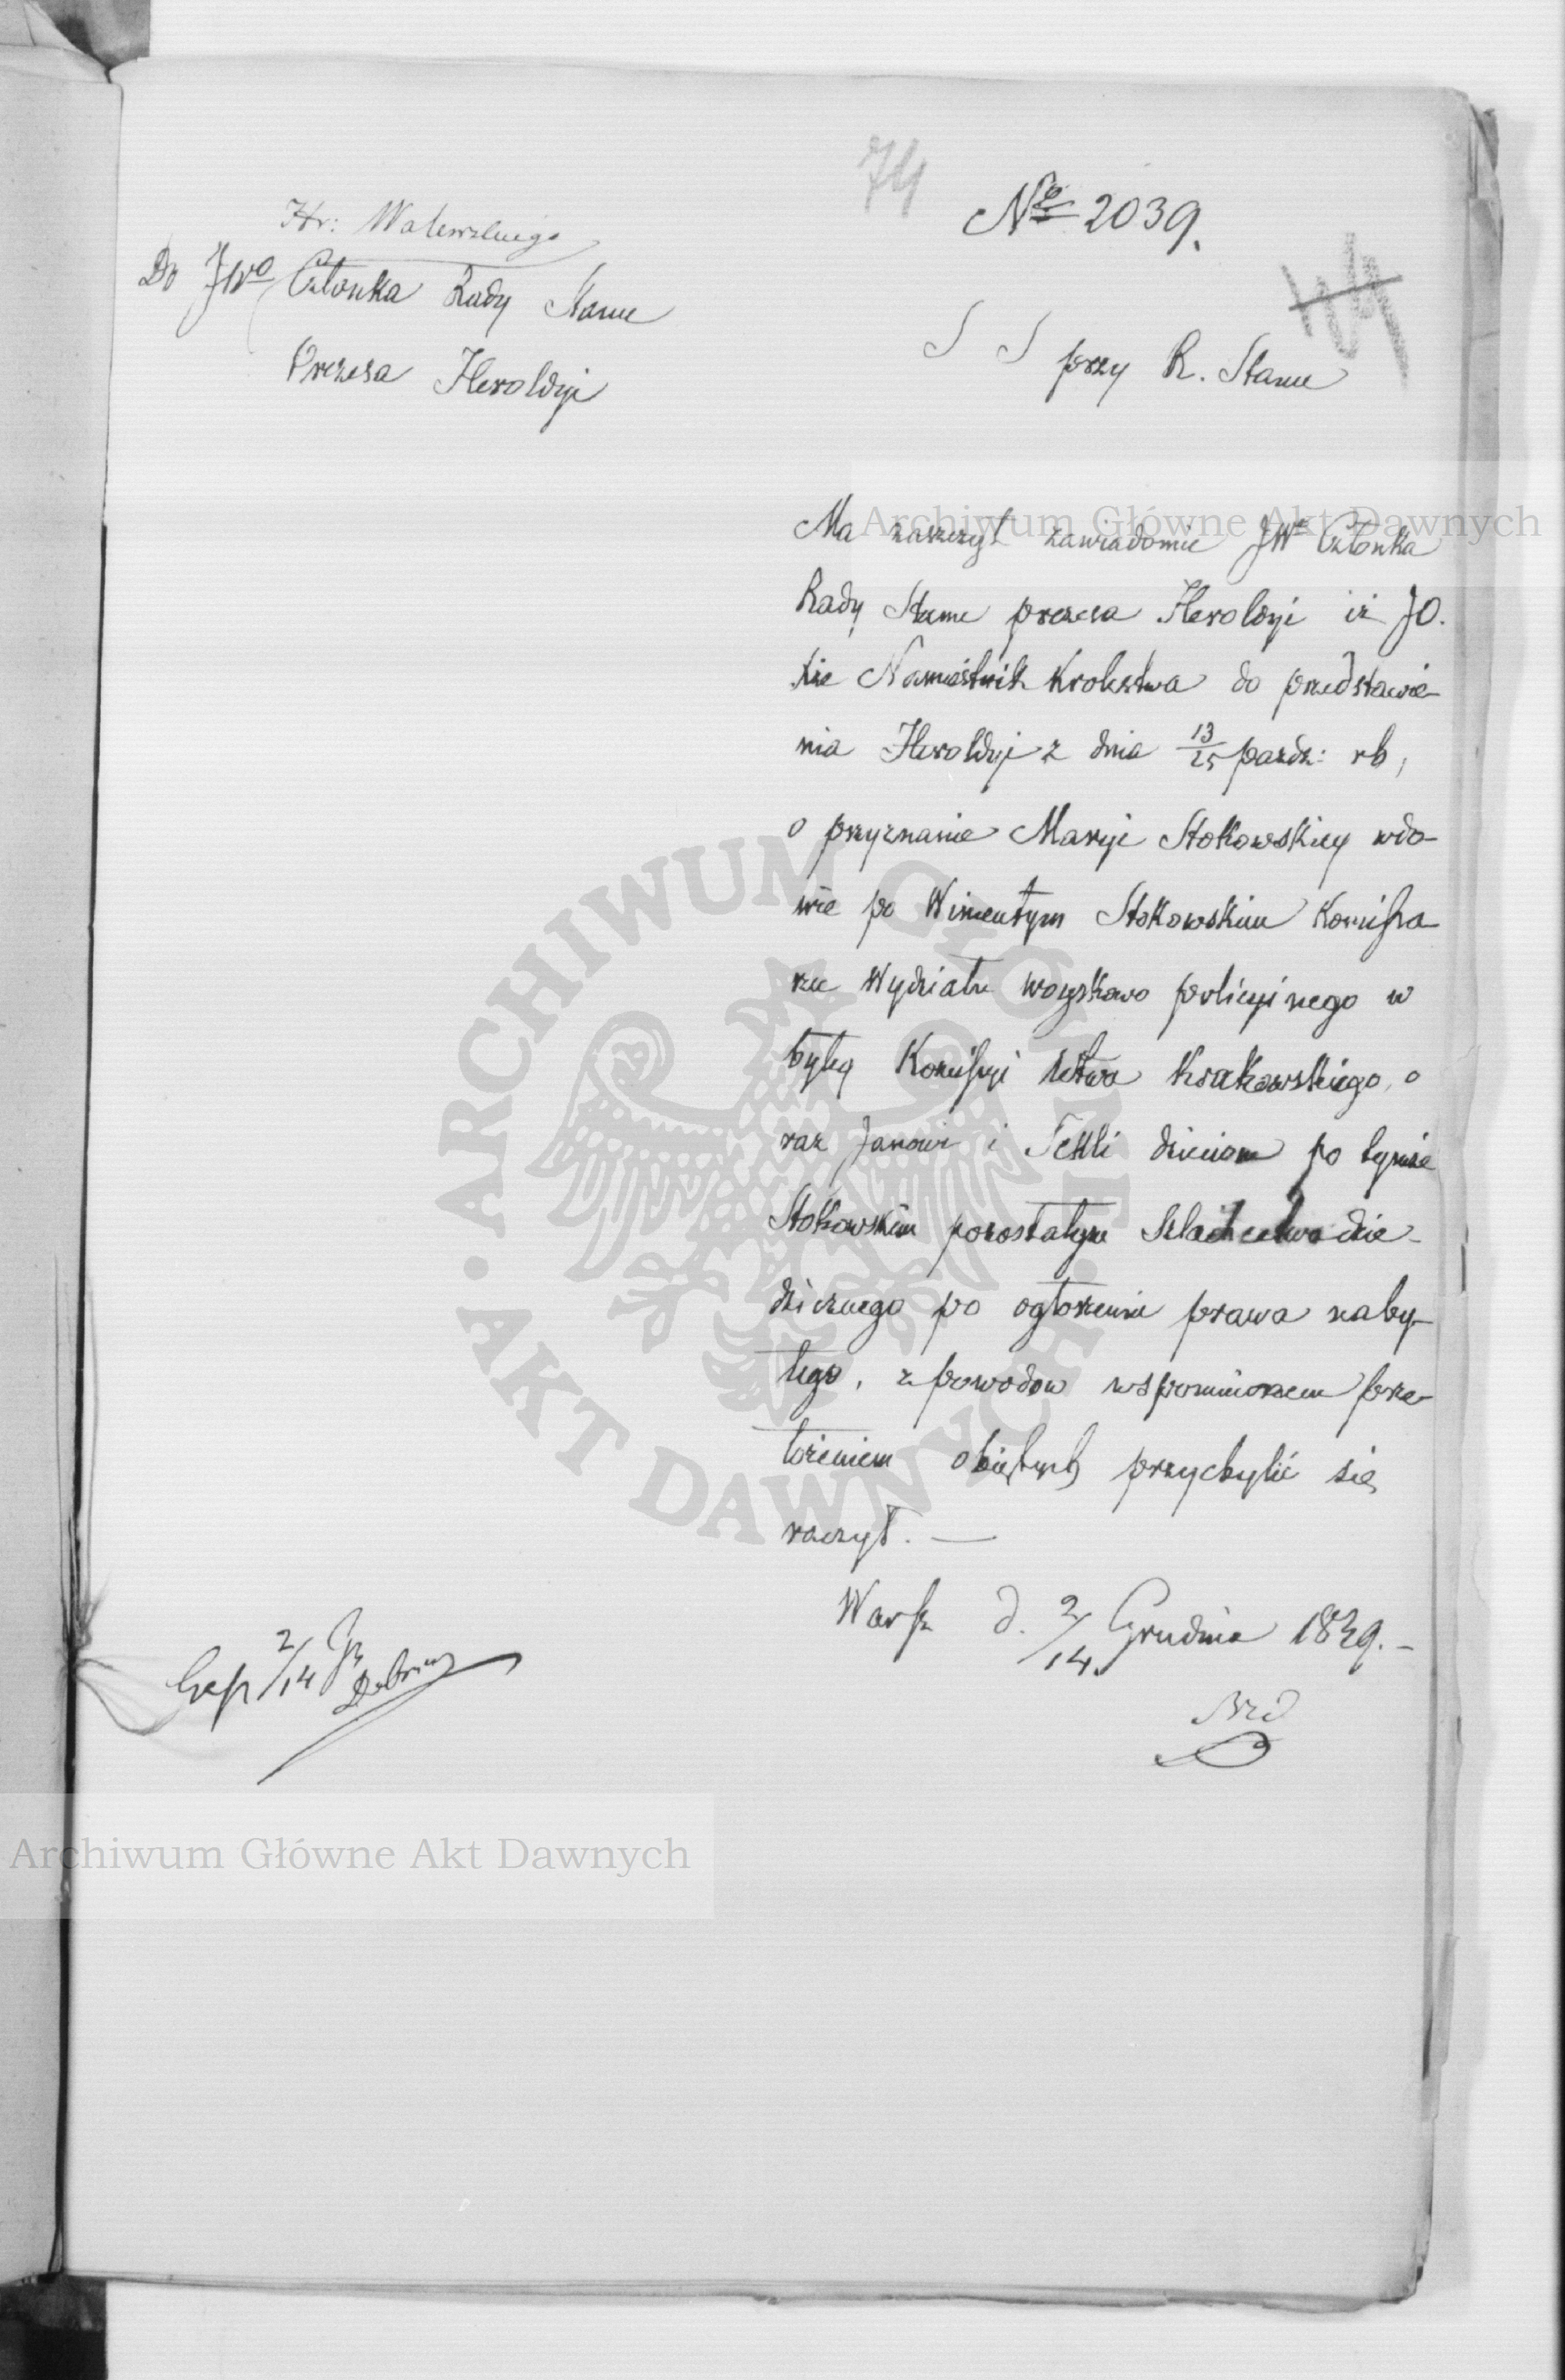 74
№ 2039.
Hr: Walewskiego
Do JWo Członka Rady Stanu
Prezesa Heroldyi
S S przy R. Stanu
Ma zaszczyt zawiadomić JWo Członka
Rady Stanu prezesa Heroldyi iż JO.
Xże Namiestnik Królestwa do przedstawie-
nia Heroldyi z dnia 13/25 paźdz: rb,
o przyznanie Maryi Stokowskiey wdo-
wie po Wincentym Stokowskim Kommissa-
rzu Wydziału woyskowo policyinego w
byłey Komissyi Wtwa Krakowskiego, o
raz Janowi i Tekli dzieciom po tymże
Stokowskim pozostałym Szlachectwa dzie-
dzicznego po ogłoszeniu prawa naby-
tego, z powodów wspomnionem prze-
łożeniem obiętych przychylić się
raczył. —
Warsz d. 2/14 Grudnia 1839. -
2/14
Archiwum Główne Akt Dawnych
ARCHIWUM GŁÓWNE AKT DAWNYCH
Archiwum Główne Akt Dawnych